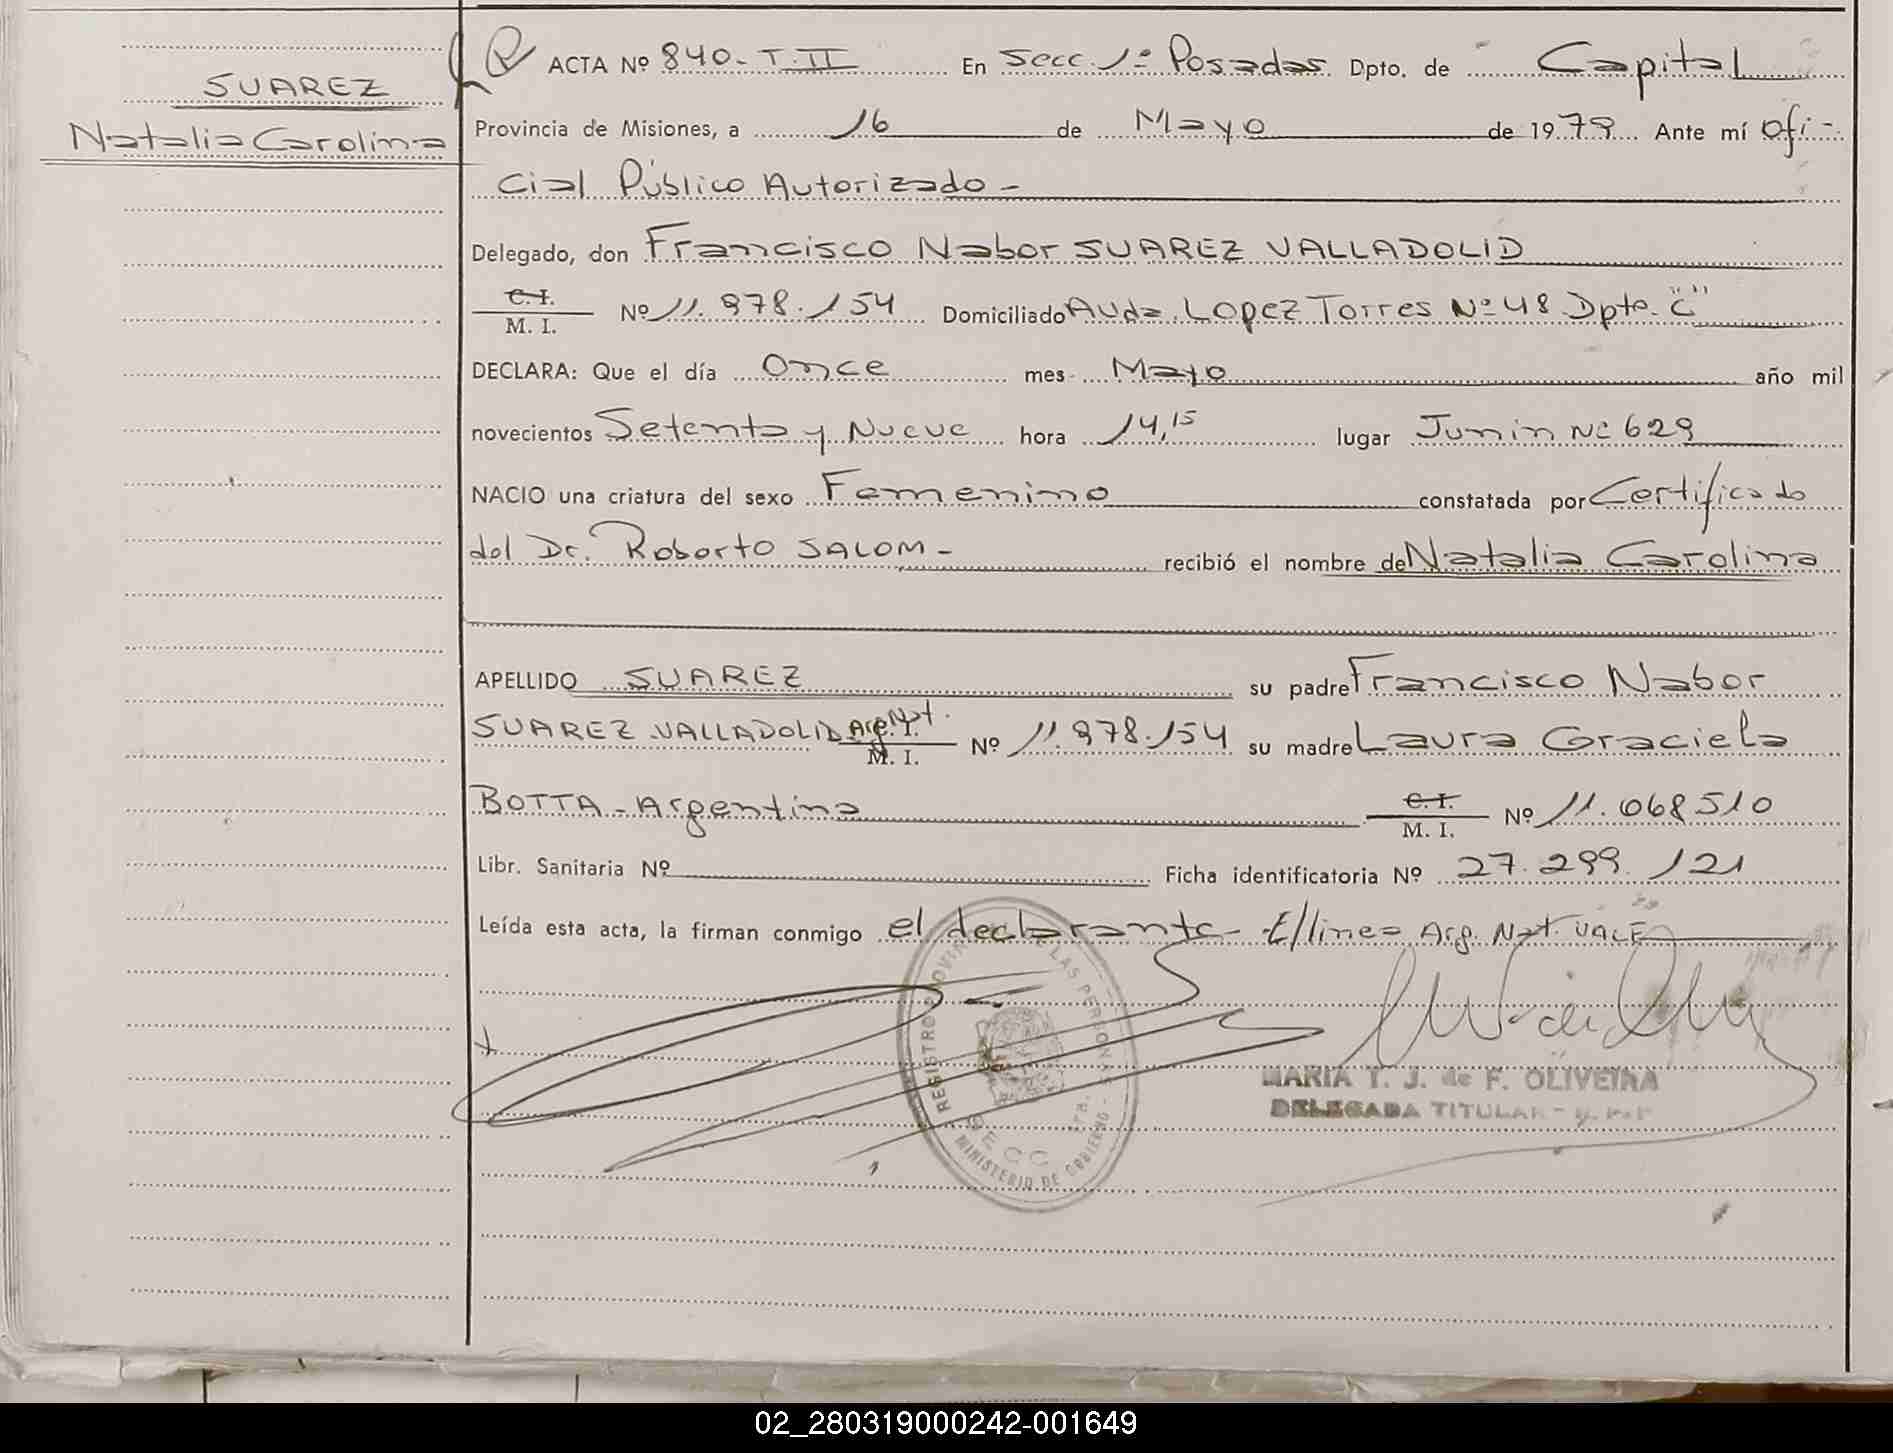 SUAREZ
Natalia Carolina
ACTA Nº 840- T. II En Secc. 1ª Posadas Dpto. de Capital
Provincia de Misiones, a 16 de Mayo de 1979 Ante mí Ofi-
cial Público Autorizado-
Delegado, don Francisco Nabor SUAREZ VALLADOLID
C. I.
M. I. Nº 11.978.154 Domiciliado Avda. LOPEZ Torres Nº 48 Dpto. "C"
DECLARA: Que el día Once mes Mayo año mil
novecientos Setenta y Nueve hora 14,15 lugar Junin Nº 629
NACIO una criatura del sexo Femenino constatada por Certificado
del Dr. Roberto SALOM- recibió el nombre de Natalia Carolina
APELLIDO SUAREZ su padre Francisco Nabor
SUAREZ VALLADOLID Arg. Nat.
M. I. Nº 11.978.154 su madre Laura Graciela
BOTTA-Argentina C. I.
M. I. Nº 11.068510
Libr. Sanitaria Nº Ficha identificatoria Nº 27.299.121
Leída esta acta, la firman conmigo el declarante- E/linea Arg. Nat. VALE
REGISTRO PROVINCIAL DE LAS PERSONAS
SECC. 1ra.
MINISTERIO DE GOBIERNO
MARIA T. J. de F. OLIVEIRA
DELEGADA TITULAR
02_280319000242-001649